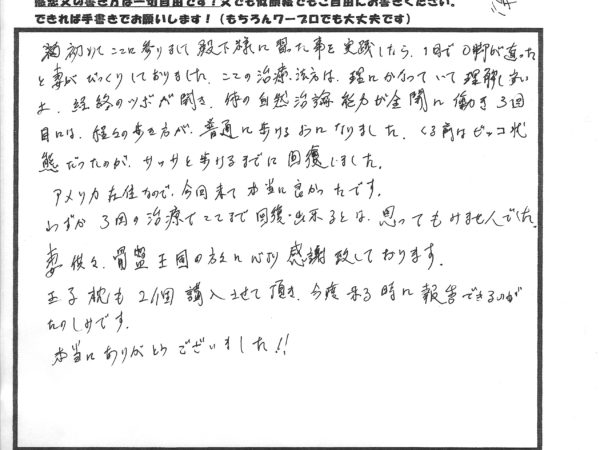 感想文の書き方は一切自由です!文でも似顔絵でもご自由にお書きください。
できれば手書きでお願いします!(もちろんワープロでも大丈夫です)
初めてここに参りまして殿下様に習った事を実践したら、1日でO脚が直った
と妻がびっくりしておりました。ここの治療法方は、理にかなっていて理解し易い
上、経絡のツボが開き、体の自然治論能力が全開に働き3回
目には、程々の歩き方が、普通に歩けるおになりました。くる前はビッコ状
態だったのが、サッサと歩けるまでに回復しました。
アメリカ在住なので、今回来て本当に良かったです。
わずか3回の治療でここまで回復出来るとは、思ってもみませんでした。
妻供々、骨盤王国の方々に心より感謝致しております。
王子枕も2個購入させて頂き、今度来る時に報告できるのが
たのしみです。
本当にありがとうございました!!